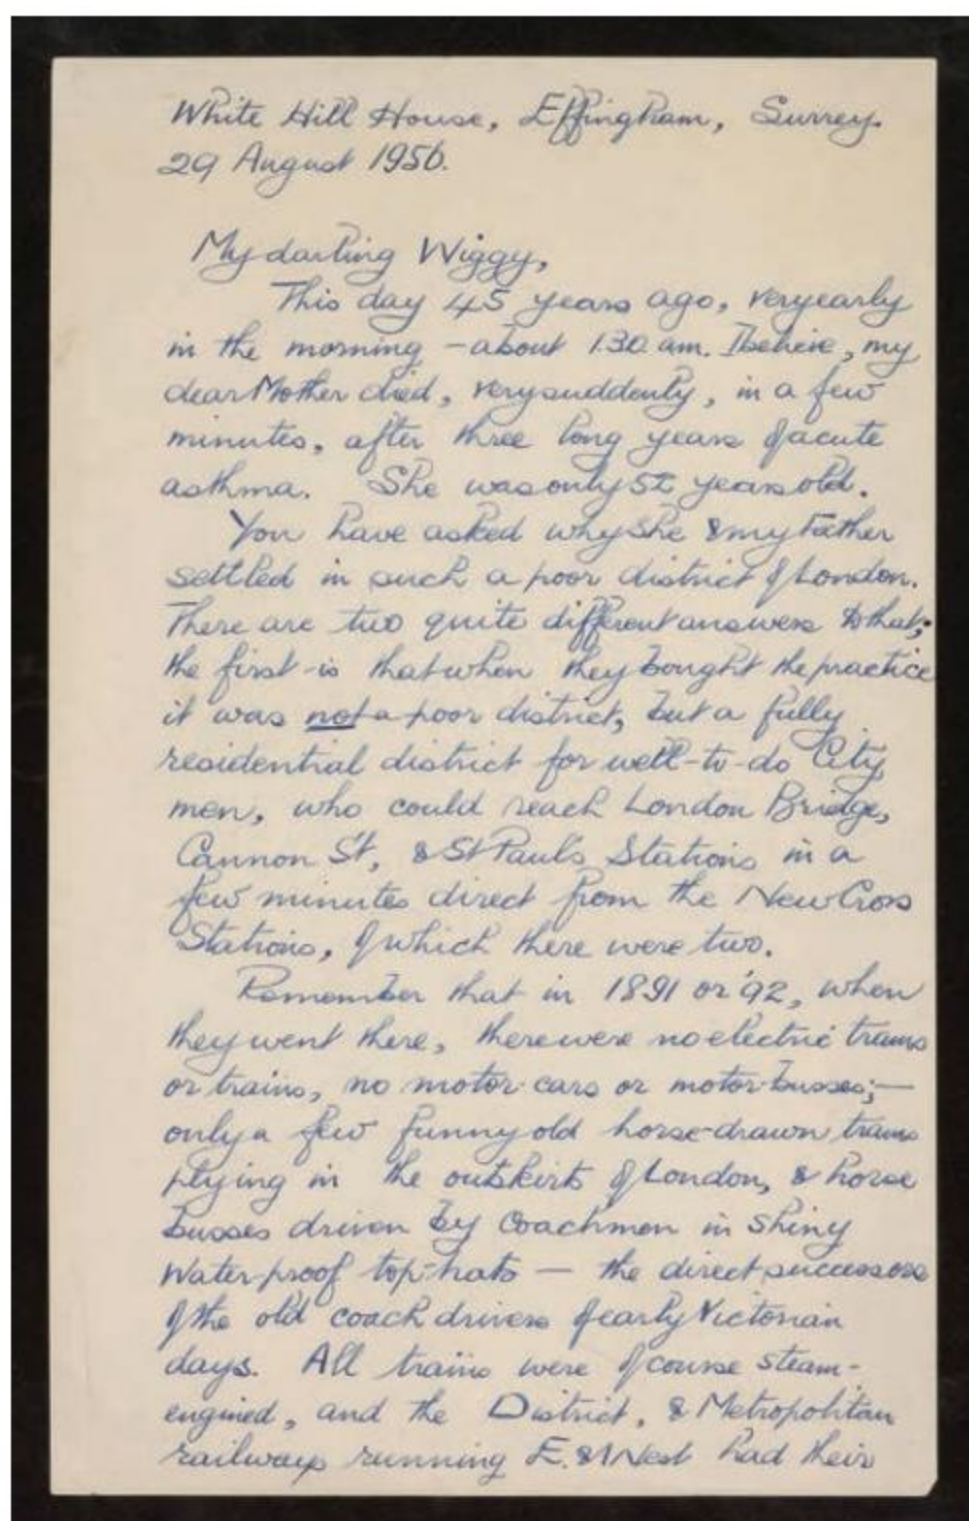 White Hill House, Effingham, Surrey.
29 August 1956.
My darling Wiggy,
This day 45 years ago, very early
in the morning – about 1.30 am. I believe, my
dear Mother died, very suddenly, in a few
minutes, after three long years of acute
asthma. She was only 52 years old.
You have asked why she & my Father
settled in such a poor district of London.
There are two quite different answers to that;
the first is that when they bought the practice
it was not a poor district, but a fully
residential district for well-to-do City
men, who could reach London Bridge,
Cannon St, & St Paul's Stations in a
few minutes direct from the New Cross
Stations, of which there were two.
Remember that in 1891 or '92, when
they went there, there were no electric trams
or trains, no motor-cars or motor-busses; —
only a few funny old horse-drawn trams
plying in the outskirts of London, & horse
busses driven by Coachmen in shiny
Waterproof top-hats — the direct successors
of the old coach drivers of early Victorian
days. All trains were of course steam-
engined, and the District, & Metropolitan
railways running E. & West had their